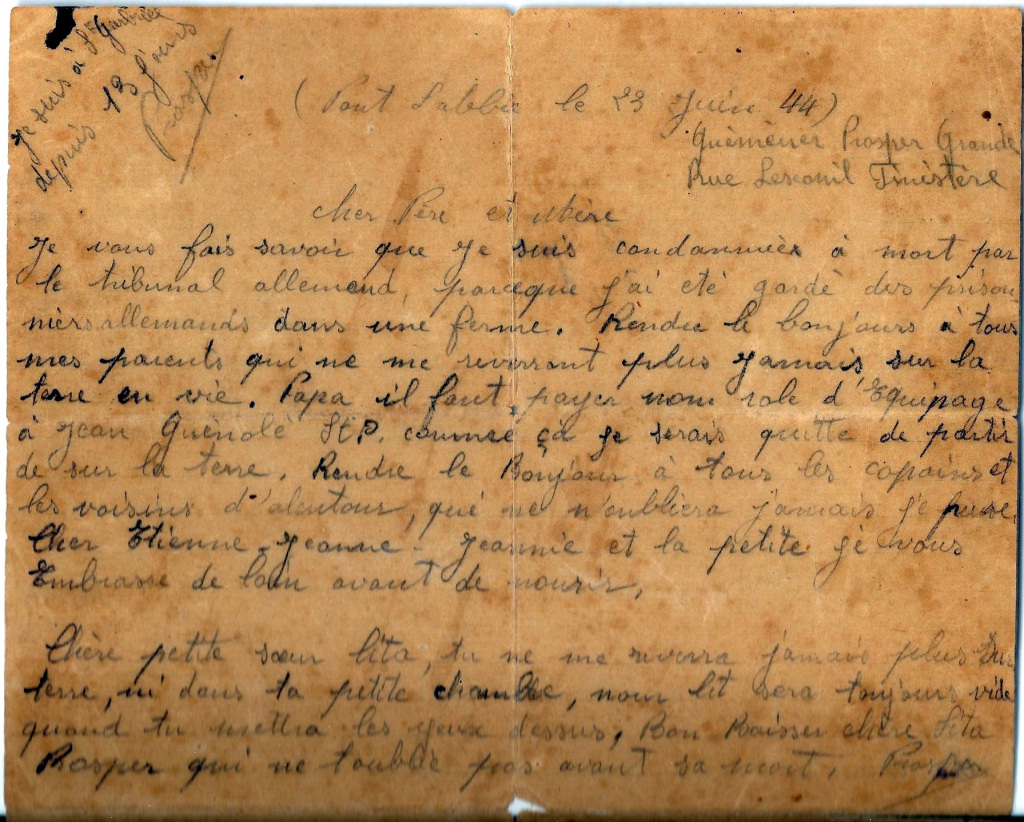 je suis à St Gabriel
depuis 13 jours
Prosper
(Pont Labbé le 23 Juin 44)
Guéméner Prosper Grande
Rue Lesconil Finistère
cher Père et Mère
Je vous fais savoir que je suis condannées à mort par
le tribunal allemand, parceque j'ai été gardé des prison
niers allemands dans une ferme. Rendre le bonjours à tous
mes parents qui ne me reverront plus jamais sur la
terre en vie. Papa il faut payer mon role d'Equipage
à Jean Guénolé StP. comme ça je serais quitte de partir
de sur la terre. Rendre le Bonjour à tous les copains et
les voisins d'alentour, qui ne n'oubliera jamais je pense.
Cher Etienne - Jeanne - Jeannie et la petite je vous
Embrasse de loin avant de mourir.
Chère petite sœur Lita, tu ne me reverra jamais plus sur
terre, ni dans ta petite chambre, mon lit sera toujours vide
quand tu mettra les yeux dessus, Bon Baiser chère Lita
Prosper qui ne toublie pas avant sa mort. Prosper